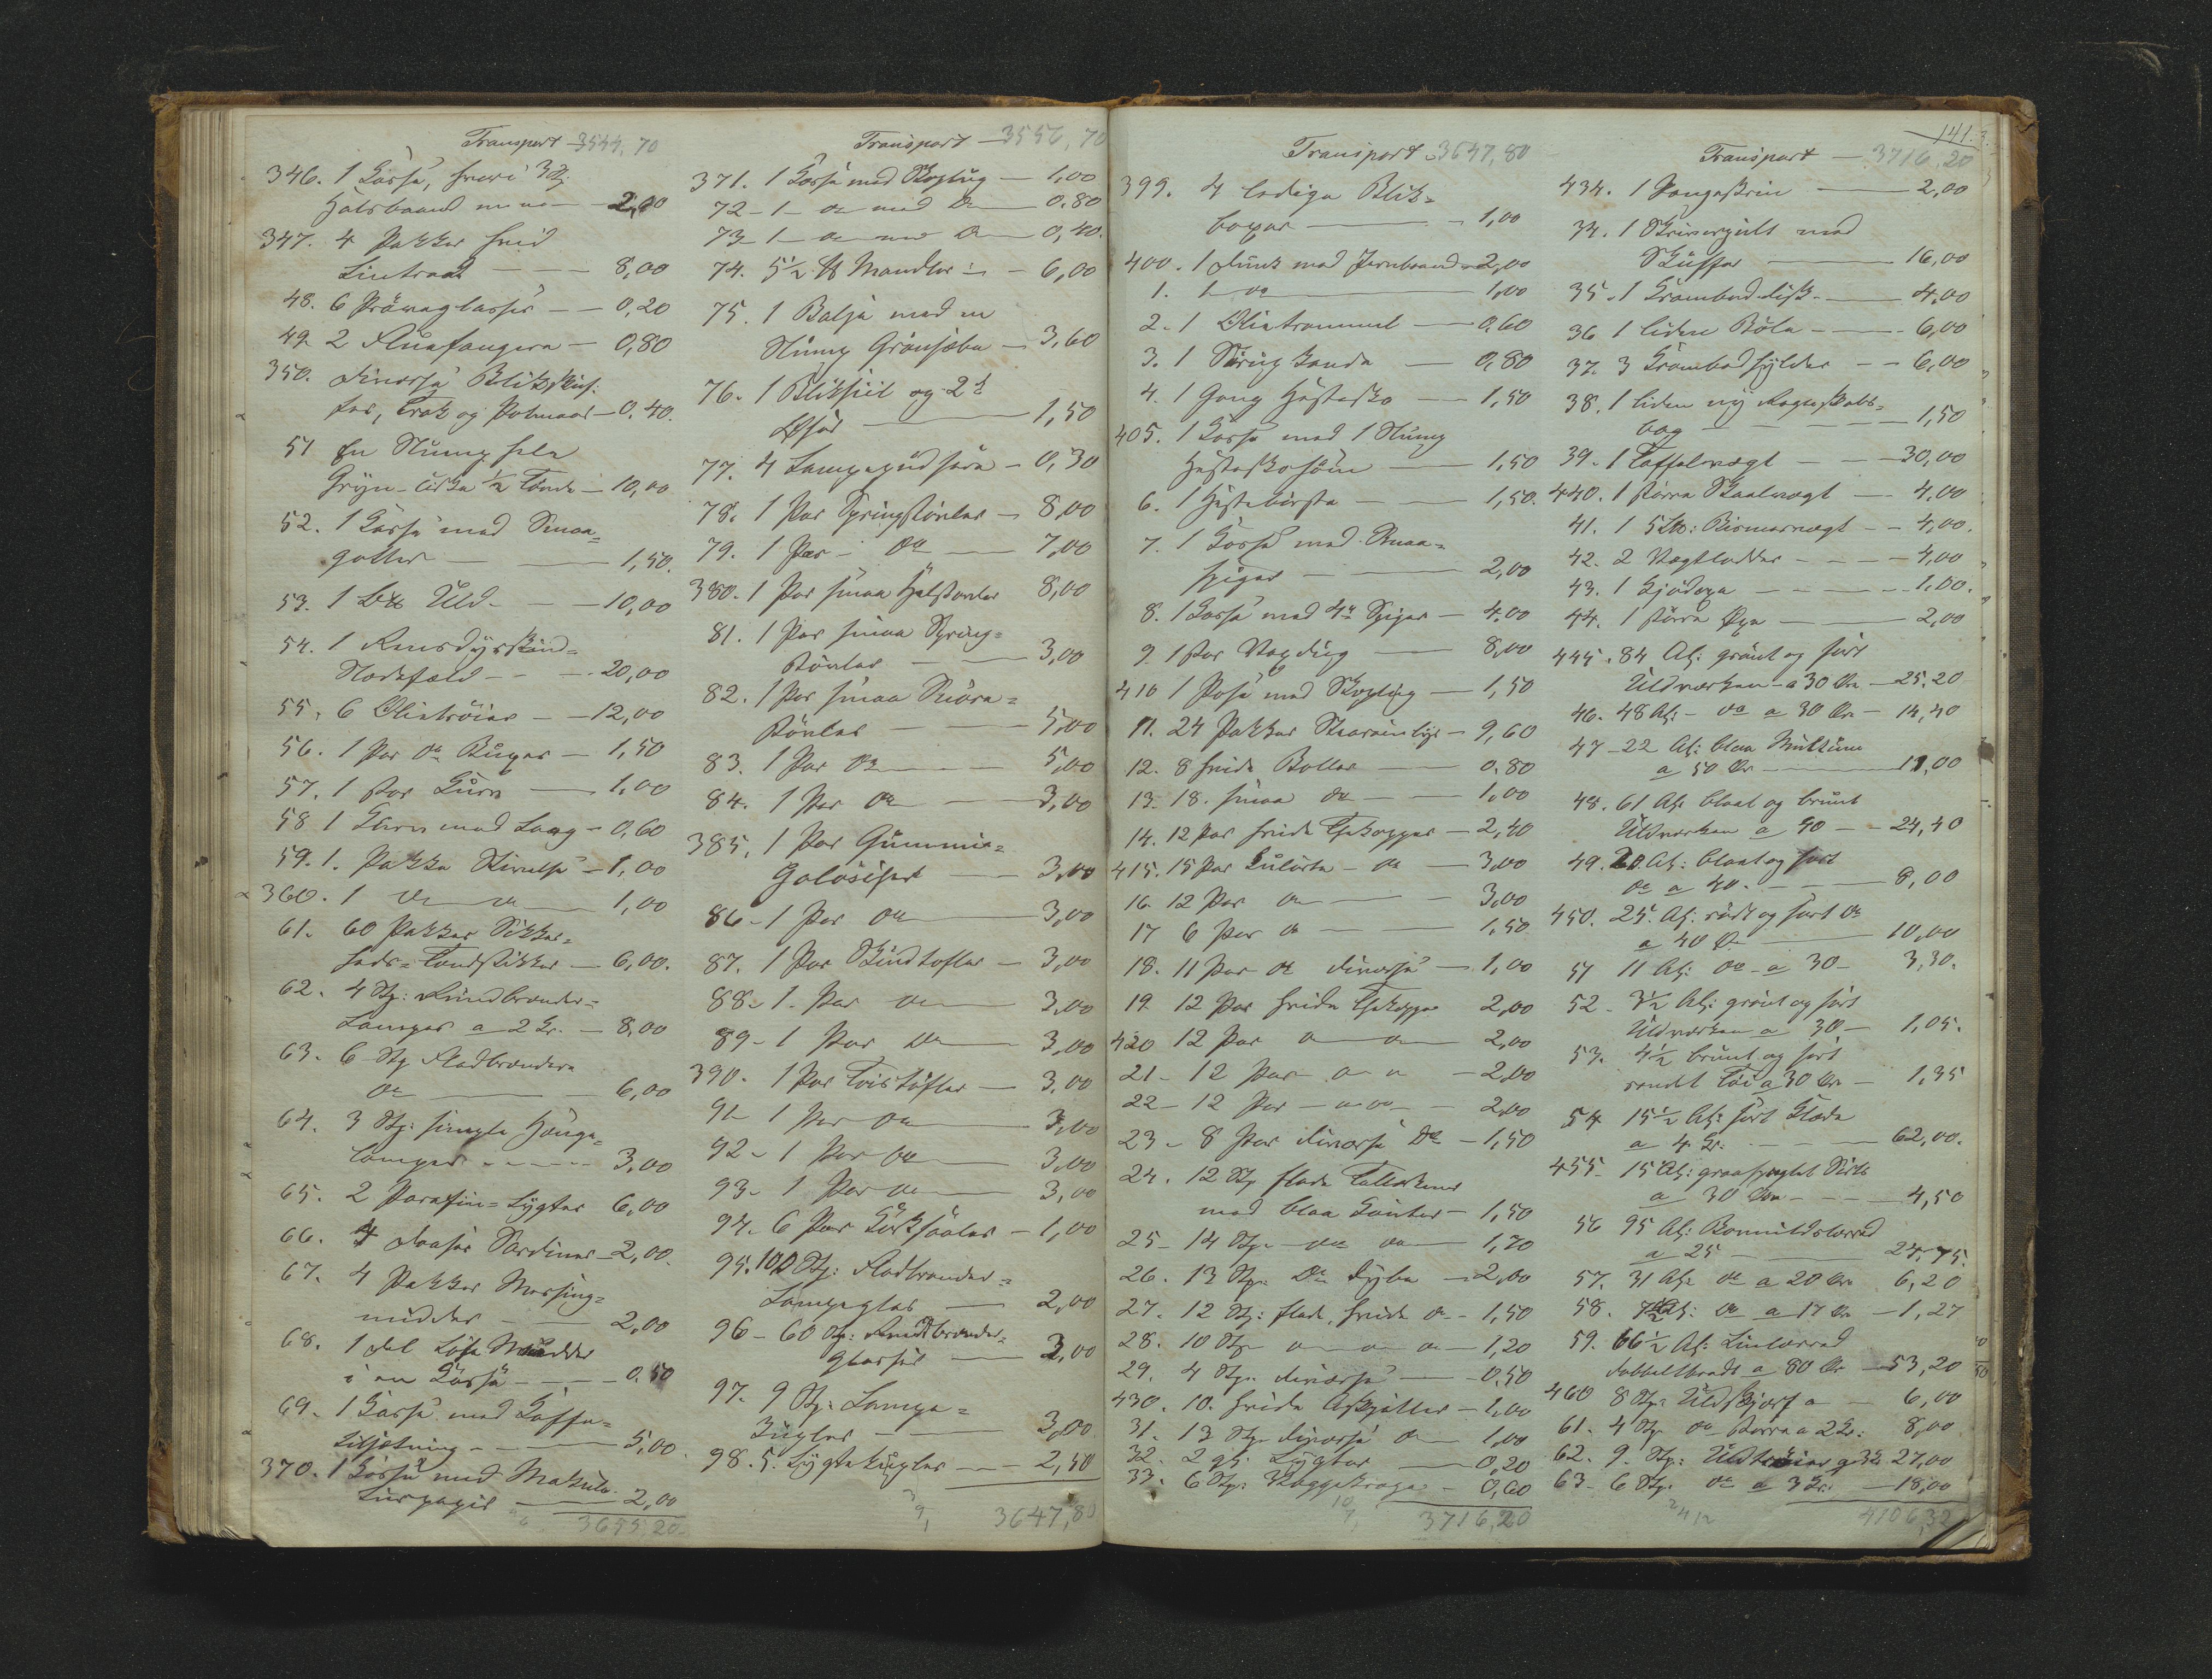 Transport - 3544,70
346. 1 Kasse, hvori 3 Stk:
Halsbaand m. m. - 2,00
347. 4 Pakker hvid
Lintraad - 8,00
48. 6 Prøveglasser - 0,20
49. 2 Fluefangere - 0,80
350. diverse Blik
10,00
51 En Slump hele
Gryn - cirka 1/2 Tønde - 10,00
52. 1 Kasse med Smaa-
gotter - 1,50.
53. 1 Uld - 10,00
54. 1 Rensdyrskind-
20,00
55. 6 Olietrøier - 12,00
56. 1 Par do Buxer - 1,50
57. 1 Par Kurv - 1,00
58 1 Kurv med Laag - 0,60
59. 1. Pakke Stivelse - 1,00
360. 1 do do 1,00
61. 60 Pakker Sikker-
heds-Tændstikker - 6,00.
62. 4 Stk: Rundbrænder-
Lamper a 2 Kr. - 8,00
63. 6 Stk Fladbrændere
do - 6,00
64. 3 Stk: simple Hænge-
lamper - 3,00
65. 2 Parafin-Lygter 6,00
66. 4 Daaser Sardiner - 2,00.
67. 4 Pakker Messing-
nidder - 2,00
68. 1 Del løse Nidder
i en Kasse - 0.50
69. 1 Kasse med Kaffe-
tilsætning - 5,00.
370. 1 Kasse med Makula-
turpapir 2,00
3655,20
Transport - 3556,70
371. 1 Kasse med Skoptug - 1,00
72 - 1 - do med do 0.80
73 - 1 - do med do 0,40.
74. 5 1/2 ℔ Mandler - 6,00
75. 1 Balje med en
Slump Grønsæbe - 3,60
76. 1 Blikspil og 2
1,50
77. 4 Lampepudsere - 0,30
78. 1 Par Springstøvler - 8,00
79. 1 Par - do 7,00
380. 1 Par smaa Halstøvler 8,00
81. 1 Par smaa Spring-
støvler - 3,00
82. 1 Par smaa Snøre-
støvler - 5,00
83. 1 Par do 5,00
84. 1 Par do 3,00
385. 1 Par Gummie-
Galoscher - 3,00
86 - 1 Par do 3,00
87. 1 Par Skindtøfler - 3,00
88 - 1. Par do 3,00
89 - 1 Par do 3,00
390. 1 Par Tøistøfler - 3,00
91 - 1 Par do 3,00
92 - 1 Par do 3,00
93 - 1 Par do 3,00
94. 6 Par Korksaaler - 1,00
95. 100 Stk: Fladbrænder-
Lampeglas - 2,00
96 - 60 Stk: Rundbrænder-
glasser - 3,00
97. 9 Stk: Lampe-
Kugler - 3,00
98. 5. Lygtekugler - 2,50
3647,80
Transport - 3647,80
399. 4 ledige Blik-
boxer - 1,00
400. 1 Dunk med Jernbaand - 2,00
1. 1 do 1,00
2. 1 Olietrommel - 0,60
3. 1 Sirup Kande - 0,80
4. 1 Gang Hestesko - 1,50
405. 1 Kasse med 1 Slump
Hesteskosøm - 1,50
6. 1 Hestebørste - 1,50.
7. 1 Kasse med Smaa-
spiger - 2,00
8. 1 Kasse med 4" Spiger - 4,00
9. 1 Par Voxdug - 8,00
410 1 Pose med Skoptug - 1,50
11. 24 Pakker Stearinlys - 9,60
12. 8 hvide Boller - 0.80
13. 18. smaa do - 1,00
14. 12 Par hvide Thekopper - 2,40
415. 15 Par Kulørte - do 3,00
16. 12 Par do 3,00
17 6 Par do 1,50
18. 11 Par do diverse - 1,00
19 12 Par hvide Thekopper 2,00
420 12 Par do do 2,00
21 - 12 Par do do - 2,00
22 - 12 Par - do do - 2,00
23 - 8 Par diverse do - 1,50
24. 12 Stk flade Tallerkener
med blaa Kanter - 1,50
25 - 14 Stk - do do 1,70
26. 13 Stk. do dybe - 2,00
27. 12 Stk: flade, hvide do - 1,50
28. 10 Stk do do do - 1,20
29. 4 Stk. diverse - 0.50
430. 10. hvide Askjetter - 1,00
31. 13 Stk. diverse do 1,00
32. 2 gl. Lygter - 0,20
33. 6 Stk: Knaggekroge - 0,60
3716,20
141.
Transport - 3716,20
434. 1 Pengeskrin - 2,00
34. 1 Skriverpult med
Skuffer - 16,00
35. 1 Krambuddisk - 4,00
36 1 liden Bøle - 6,00
37. 3 Krambodhylder - 6,00
38. 1 liden ny Regnskabs-
bog - 1,50
39. 1 Taffelvægt - 30,00
440. 1 større Skaalvægt - 4,00
41. 1 Bismervægt - 4,00.
42. 2 Vægtlodder - 4,00
43. 1 Kjødøxe - 1.00.
44. 1 større Øxe - 2,00
445. 84 Al: grønt og sort
Uldværken - a 30 Øre - 25,20
46. 48 Al: - do a 30 Øre - 14,40
47 - 22 Al: blaa Multum
a 50 Øre 11,00
48. 61 Al: blaat og brunt
Uldværken a 40 - 24,40
49. 20 Al: blaat og sort
do a 40. - 8,00
450. 25. Al: rødt og sort do
a 40 Ø 10,00
51 11 Al: do - a 30 - 3,30.
52 - 3 1/2 Al: grønt og sort
Uldværken a 30 - 1,05.
53. 4 1/2 brunt og sort
randet Tøi a 30 Øre - 1,35
54 15 1/2 Al: sort Klæde
a 4 Kr. - 62,00.
455 - 15 Al: graaspraglet Sirts
a 30 Øre - 4,50
56 95 Al: Bomuldslærred
a 25 24,75.
57. 31 Al: do a 20 Øre 6,20
58. 7 1/2 Al: do a 17 Ø - 1,27
59. 66 1/2 Al: Linlærred
dobbeltbredt a 80 Ør - 53,20
460 8 Stk: Uldskjørt a - 6,00
61. 4 Stk do større a 2 Kr: 8,00
62. 9. Stk: Uldtrøier a 3 Kr 27,00
63 - 6 Stk. do a 3 Kr. - 18,00
4106,32